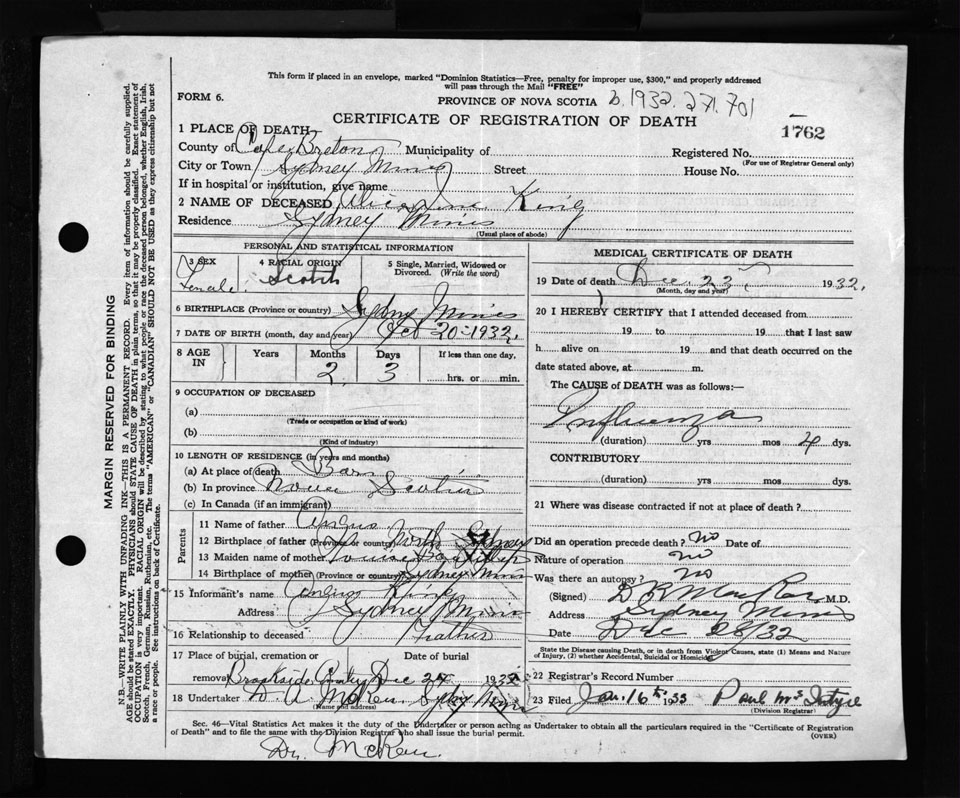 This form if placed in an envelope, marked "Dominion Statistics—Free, penalty for improper use, $300," and properly addressed
will pass through the Mail "FREE"
FORM 6.
PROVINCE OF NOVA SCOTIA b. 1932. 271. 701
CERTIFICATE OF REGISTRATION OF DEATH
1762
1 PLACE OF DEATH
County of Cape Breton Municipality of Registered No.
(For use of Registrar General only)
City or Town Sydney Mines Street House No.
If in hospital or institution, give name
2 NAME OF DECEASED Alice King
Residence Sydney Mines
(Usual place of abode)
PERSONAL AND STATISTICAL INFORMATION
3 SEX 4 RACIAL ORIGIN 5 Single, Married, Widowed or Divorced. (Write the word)
Female Scotch
6 BIRTHPLACE (Province or country) Sydney Mines
7 DATE OF BIRTH (month, day and year) Oct 20-1932.
8 AGE IN Years Months Days If less than one day,
2 3 hrs. or min.
9 OCCUPATION OF DECEASED
(a)
(Trade or occupation or kind of work)
(b)
(Kind of industry)
10 LENGTH OF RESIDENCE (in years and months)
(a) At place of death Born
(b) In province Nova Scotia
(c) In Canada (if an immigrant)
Parents
11 Name of father Angus
12 Birthplace of father (Province or country) North Sydney
13 Maiden name of mother Louise
14 Birthplace of mother (Province or country) Sydney Mines
15 Informant's name Angus King
Address Sydney Mines
16 Relationship to deceased Father
17 Place of burial, cremation or removal Date of burial
Brookside Dec 24 1932
18 Undertaker D. A. McRae. Sydney Mines
(Name and address)
MEDICAL CERTIFICATE OF DEATH
19 Date of death Dec. 23 1932.
(Month, day and year)
20 I HEREBY CERTIFY that I attended deceased from
19 to 19 that I last saw
h alive on 19 and that death occurred on the
date stated above, at m.
The CAUSE of DEATH was as follows:—
Influenza
(duration) yrs mos 4 dys.
CONTRIBUTORY
(duration) yrs mos dys.
21 Where was disease contracted if not at place of death?
Did an operation precede death? no Date of
Nature of operation no
Was there an autopsy? no
(Signed) D R MacRae M.D.
Address Sydney Mines
Date Dec 28/32
State the Disease causing Death, or in death from Violent Causes, state (1) Means and Nature
of Injury, (2) whether Accidental, Suicidal or Homicidal
22 Registrar's Record Number
23 Filed Jan. 16th 1933 Paul McIntyre
(Division Registrar)
Sec. 46—Vital Statistics Act makes it the duty of the Undertaker or person acting as Undertaker to obtain all the particulars required in the "Certificate of Registration
of Death" and to file the same with the Division Registrar who shall issue the burial permit.
(OVER)
MARGIN RESERVED FOR BINDING
N.B.—WRITE PLAINLY WITH UNFADING INK—THIS IS A PERMANENT RECORD. Every item of information should be carefully supplied.
AGE should be stated EXACTLY. PHYSICIANS should STATE CAUSE OF DEATH in plain terms, so that it may be properly classified. Exact statement of
OCCUPATION is very important. RACIAL ORIGIN will be described by stating to what people or race the deceased person belonged, whether English, Irish,
Scotch, French, German, Russian, Ruthenian, etc. The terms "AMERICAN" or "CANADIAN" SHOULD NOT BE USED as they express citizenship but not
a race or people. See instructions on back of Certificate.